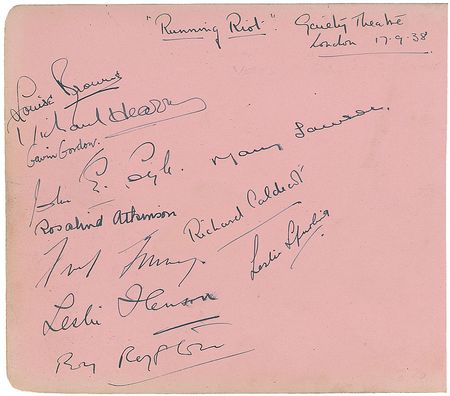 "Running Riot". Gaiety Theatre
London 17.9.38
Louise Browne
Richard Hearne
Gavin Gordon.
John E. Coyle.
Mary Lawson.
Rosalind Atkinson
Richard Caldicot
Fred Emney
Leslie
Leslie Henson
Roy Royston